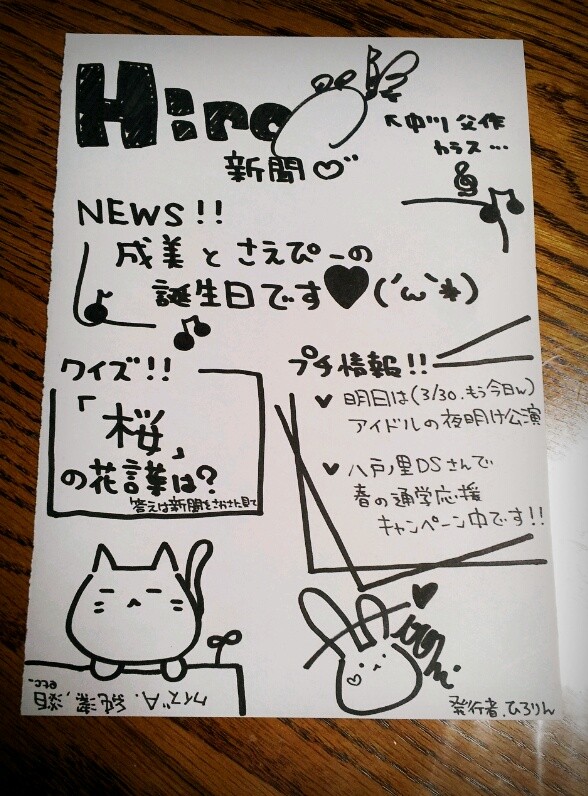 Hiro
↖中川父作
カラス…
新聞♡
NEWS!!
成美とさえぴーの
誕生日です♥(´ω`*)
クイズ!!
「桜」
の花言葉は?
答えは新聞をさかさに見て
プチ情報!!
♥ 明日は(3/30.もう今日w)
アイドルの夜明け公演
♥ 八戸ノ里DSさんで
春の通学応援
キャンペーン中です!!
クイズA. 純潔,淡白
etc..
発行者.ひろりん